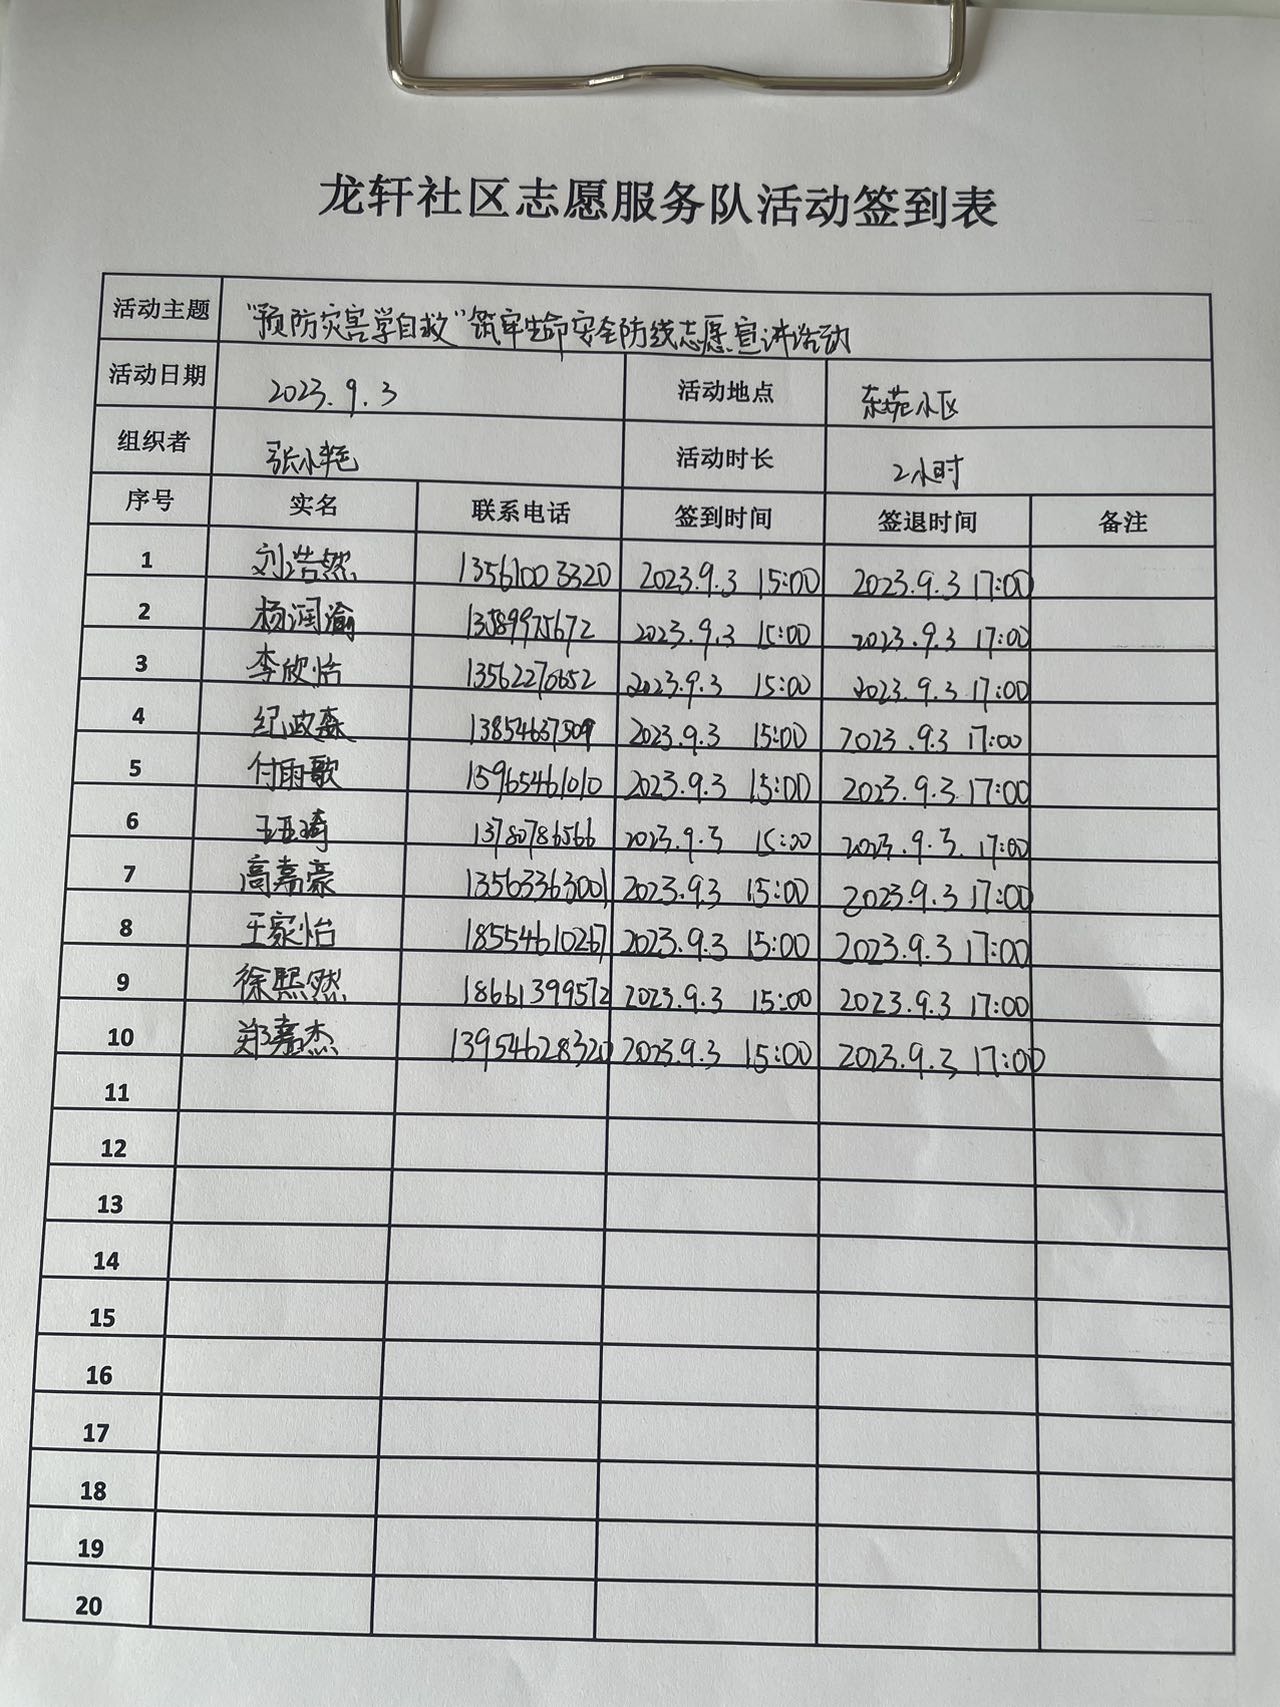 龙轩社区志愿服务队活动签到表
活动主题 “预防灾害学自救”筑牢生命安全防线志愿宣讲活动
活动日期 2023.9.3 活动地点 东苑小区
组织者 张小艳 活动时长 2小时
序号 实名 联系电话 签到时间 签退时间 备注
1 刘浩然 13561003320 2023.9.3 15:00 2023.9.3 17:00
2 杨润渝 13589975672 2023.9.3 15:00 2023.9.3 17:00
3 李欣怡 13562270652 2023.9.3 15:00 2023.9.3 17:00
4 纪政森 13854637509 2023.9.3 15:00 2023.9.3 17:00
5 付雨歌 15965461010 2023.9.3 15:00 2023.9.3 17:00
6 王玉琦 13780786566 2023.9.3 15:00 2023.9.3. 17:00
7 高嘉豪 13563363001 2023.9.3 15:00 2023.9.3 17:00
8 王家怡 18554610267 2023.9.3 15:00 2023.9.3 17:00
9 徐熙然 18661399572 2023.9.3 15:00 2023.9.3 17:00
10 郑嘉杰 13954628320 2023.9.3 15:00 2023.9.3 17:00
11
12
13
14
15
16
17
18
19
20